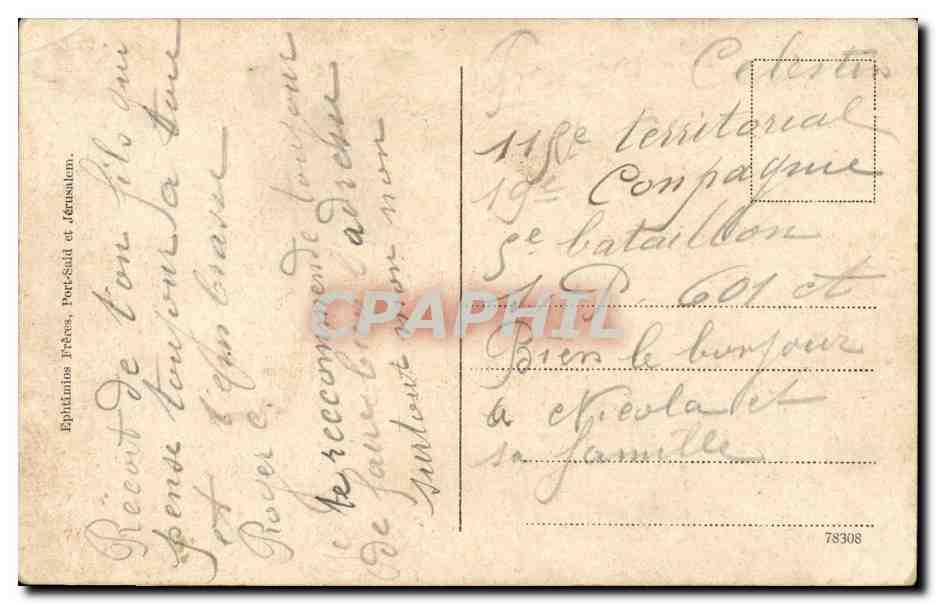 Ephtimios Frères, Port-Said et Jérusalem.
Récoit de ton fils qui
pense toujour a toue
et t'embrasse
Roger C.
Je te reccommende toujour
de faire bien adrcher
surtout mon non
Celestin
118e territorial
19e Conpagnie
5e bataillon
S. P. 601 et
Bien le bonjour
a Nicola et
sa famille
78308
CPAPHIL